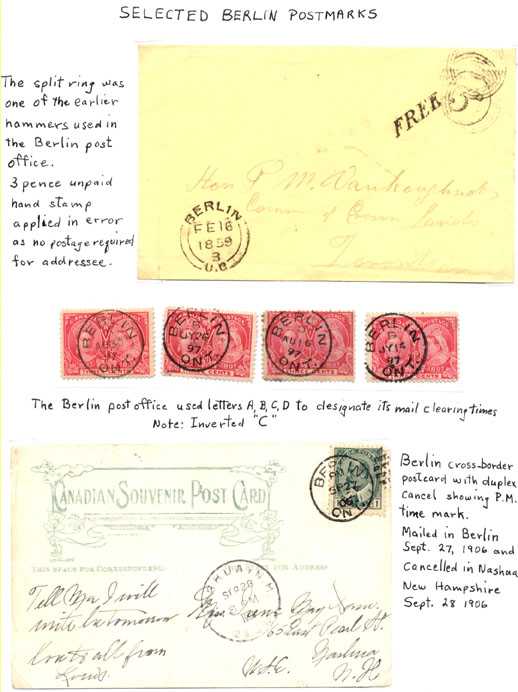 SELECTED BERLIN POSTMARKS
The split ring was
one of the earlier
hammers used in
the Berlin post
office.
3 pence unpaid
hand stamp
applied in error
as no postage required
for addressee.
FREE
3
Hon P. M. Vankoughnet
Comm of Crown Lands
Toronto
BERLIN
FE 16
1859
U.C
BERLIN
97
ONT.
BERLIN
JY 26
97
ONT.
BERLIN
AU 16
97
ONT.
BERLIN
B
JY 14
97
ONT.
The Berlin post office used letters A, B, C, D to designate its mail clearing times
Note: Inverted "C"
CANADIAN SOUVENIR POST CARD
THIS SPACE FOR CORRESPONDENCE
FOR ADDRESS
BERLIN
SP 27
06
ONT
Tell Ma I will
write be tomorrow
Love to all from
Louis.
SP 28
Pearl St.
Nashua
N.H
Berlin cross-border
postcard with duplex
cancel showing P.M.
time mark.
Mailed in Berlin
Sept. 27, 1906 and
Cancelled in Nashaa,
New Hampshire
Sept. 28 1906